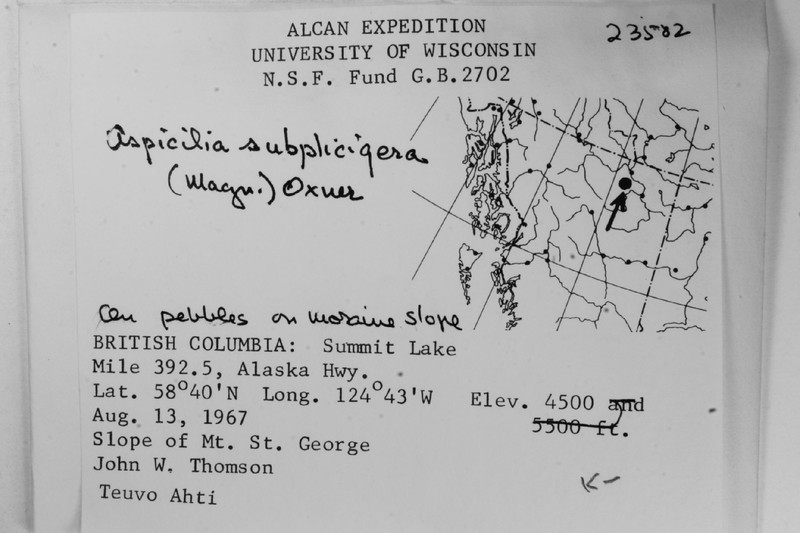 ALCAN EXPEDITION
23582
UNIVERSITY OF WISCONSIN
N.S.F. Fund G.B.2702
Aspicilia subplicigera
(Magn.) Oxner
On pebbles on moraine slope
BRITISH COLUMBIA: Summit Lake
Mile 392.5, Alaska Hwy.
Lat. 58°40'N Long. 124°43'W Elev. 4500 and
Aug. 13, 1967 5500 ft.
Slope of Mt. St. George
John W. Thomson
Teuvo Ahti
K-